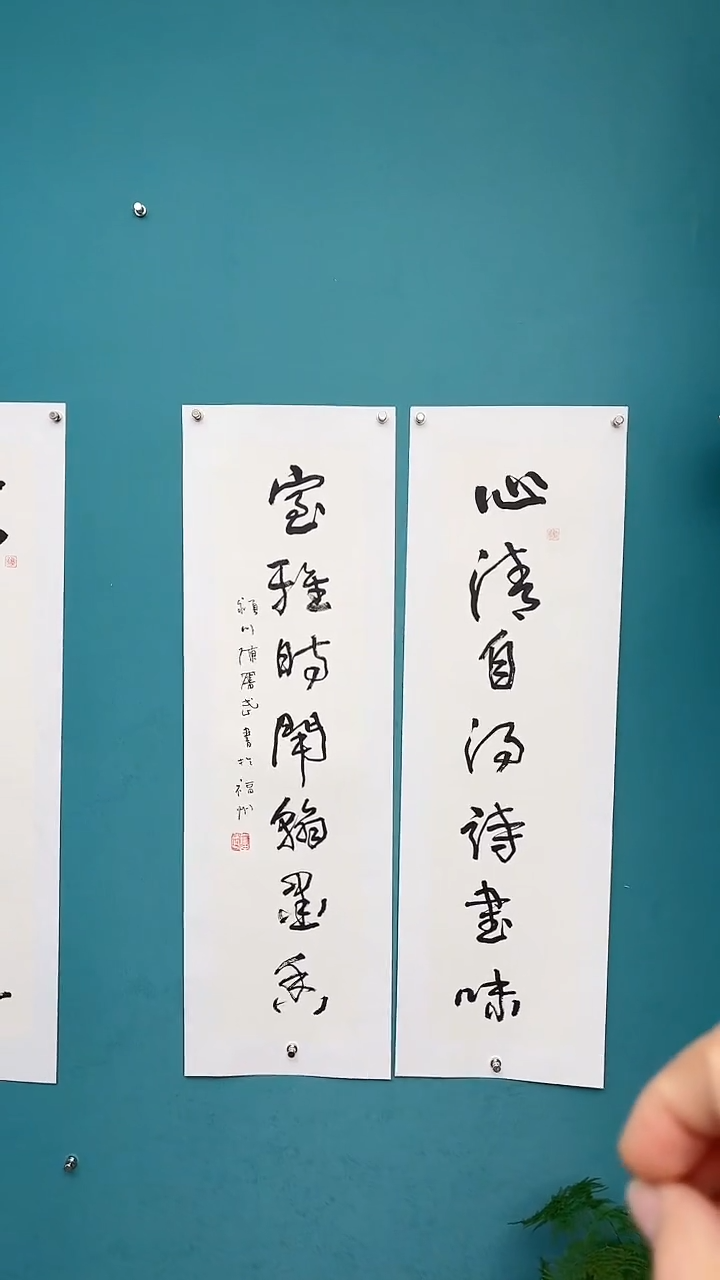 心清自得詩書味
室雅時聞翰墨香
穎川陳層岱書於福州